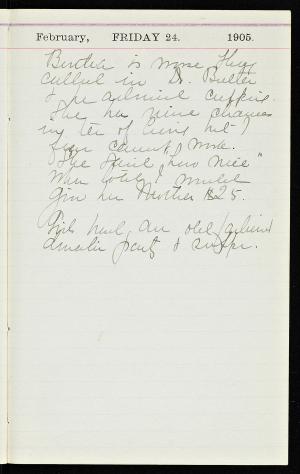 February, FRIDAY 24. 1905.
Bertha is worse they
called in Dr. Butler
& he advised cupping.
She has nine chances
in ten of living but I
fear cannot
She said "how nice"
when told I would
give her Mother $25.
Girls had an old fashioned
party & supper.